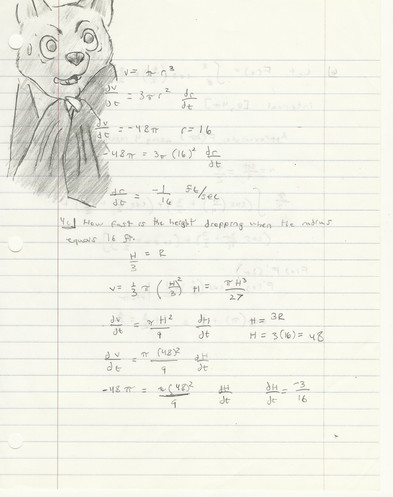 v = π r³
dv/dt = 3π r² dr/dt
dv/dt = -48π r = 16
-48π = 3π (16)² dr/dt
dr/dt = -1/16 ft/sec
4c) How fast is the height dropping when the radius
equals 16 ft.
H/3 = R
v = 1/3 π (H/3)² H = πH³/27
dv/dt = πH²/9 dH/dt H = 3R
H = 3(16) = 48
dv/dt = π(48)²/9 dH/dt
-48π = π(48)²/9 dH/dt dH/dt = -3/16